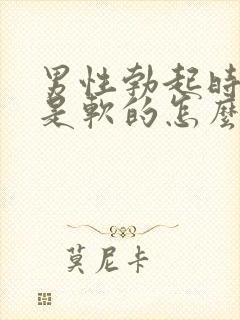 男性勃起時
是軟的怎麼
莫尼卡